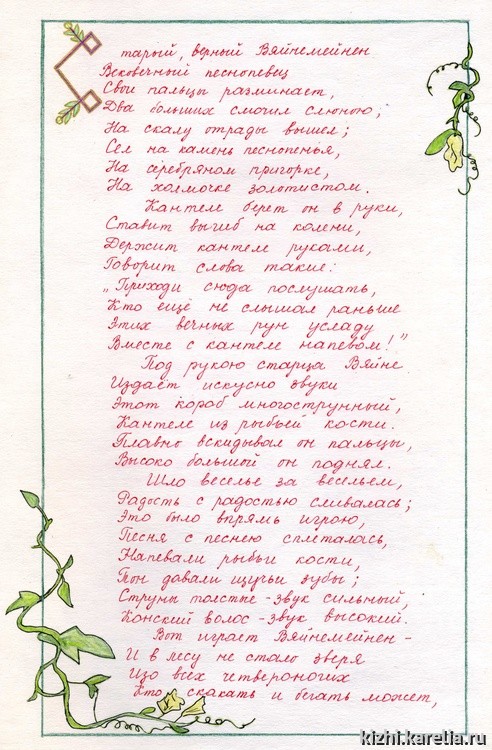 Старый, верный Вяйнемейнен
Вековечный песнопевец
Свои пальцы разминает,
Два больших смочил слюною;
На скалу отрады вышел;
Сел на камень песнопенья,
На серебряном пригорке,
На холмочке золотистом.
Кантеле берет он в руки,
Ставит выгиб на колени,
Держит кантеле руками,
Говорит слова такие:
„Приходи сюда послушать,
Кто ещё не слышал раньше
Этих вечных рун усладу
Вместе с кантеле напевом!"
Под рукою старца Вяйне
Издаёт искусно звуки
Этот короб многострунный,
Кантеле из рыбьей кости.
Плавно вскидывал он пальцы,
Высоко большой он поднял.
Шло веселье за весельем,
Радость с радостью сливалась;
Это было впрямь игрою,
Песня с песнею сплеталась,
Напевали рыбьи кости,
Тон давали щучьи зубы;
Струны толстые - звук сильный,
Конский волос - звук высокий.
Вот играет Вяйнемейнен -
И в лесу не стало зверя
Изо всех четвероногих
Кто скакать и бегать может,
kizhi.karelia.ru